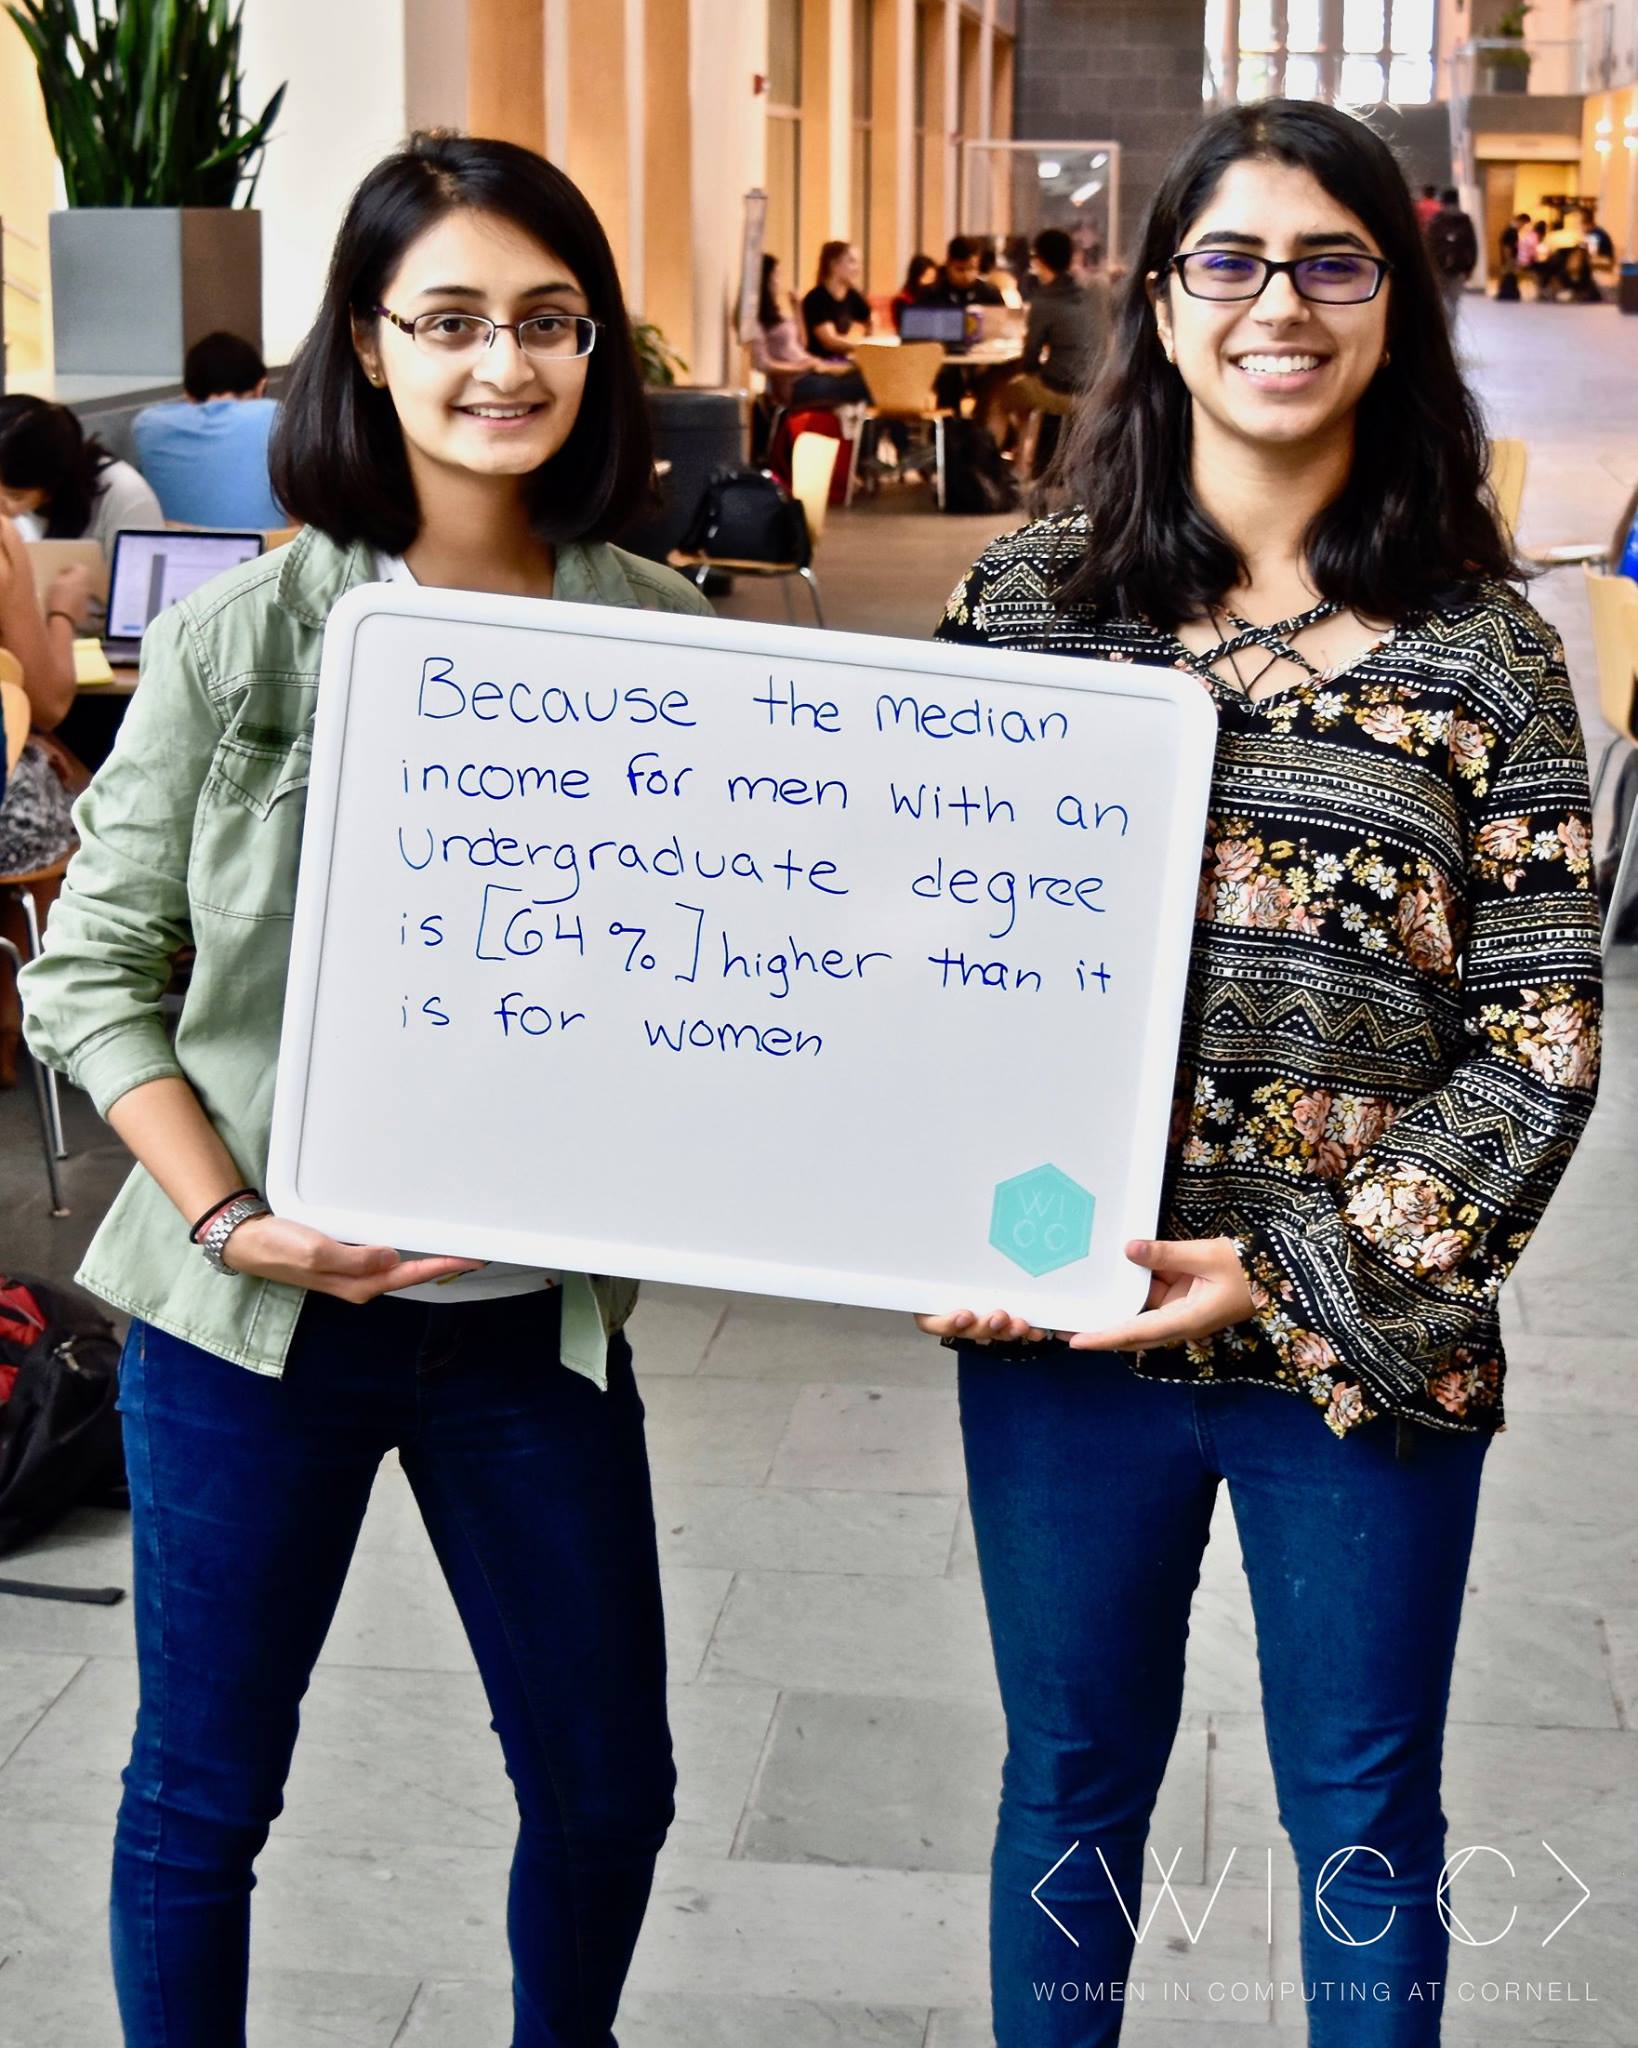 Because the median
income for men with an
undergraduate degree
is [64%] higher than it
is for women
WI
CC
<WICC>
WOMEN IN COMPUTING AT CORNELL